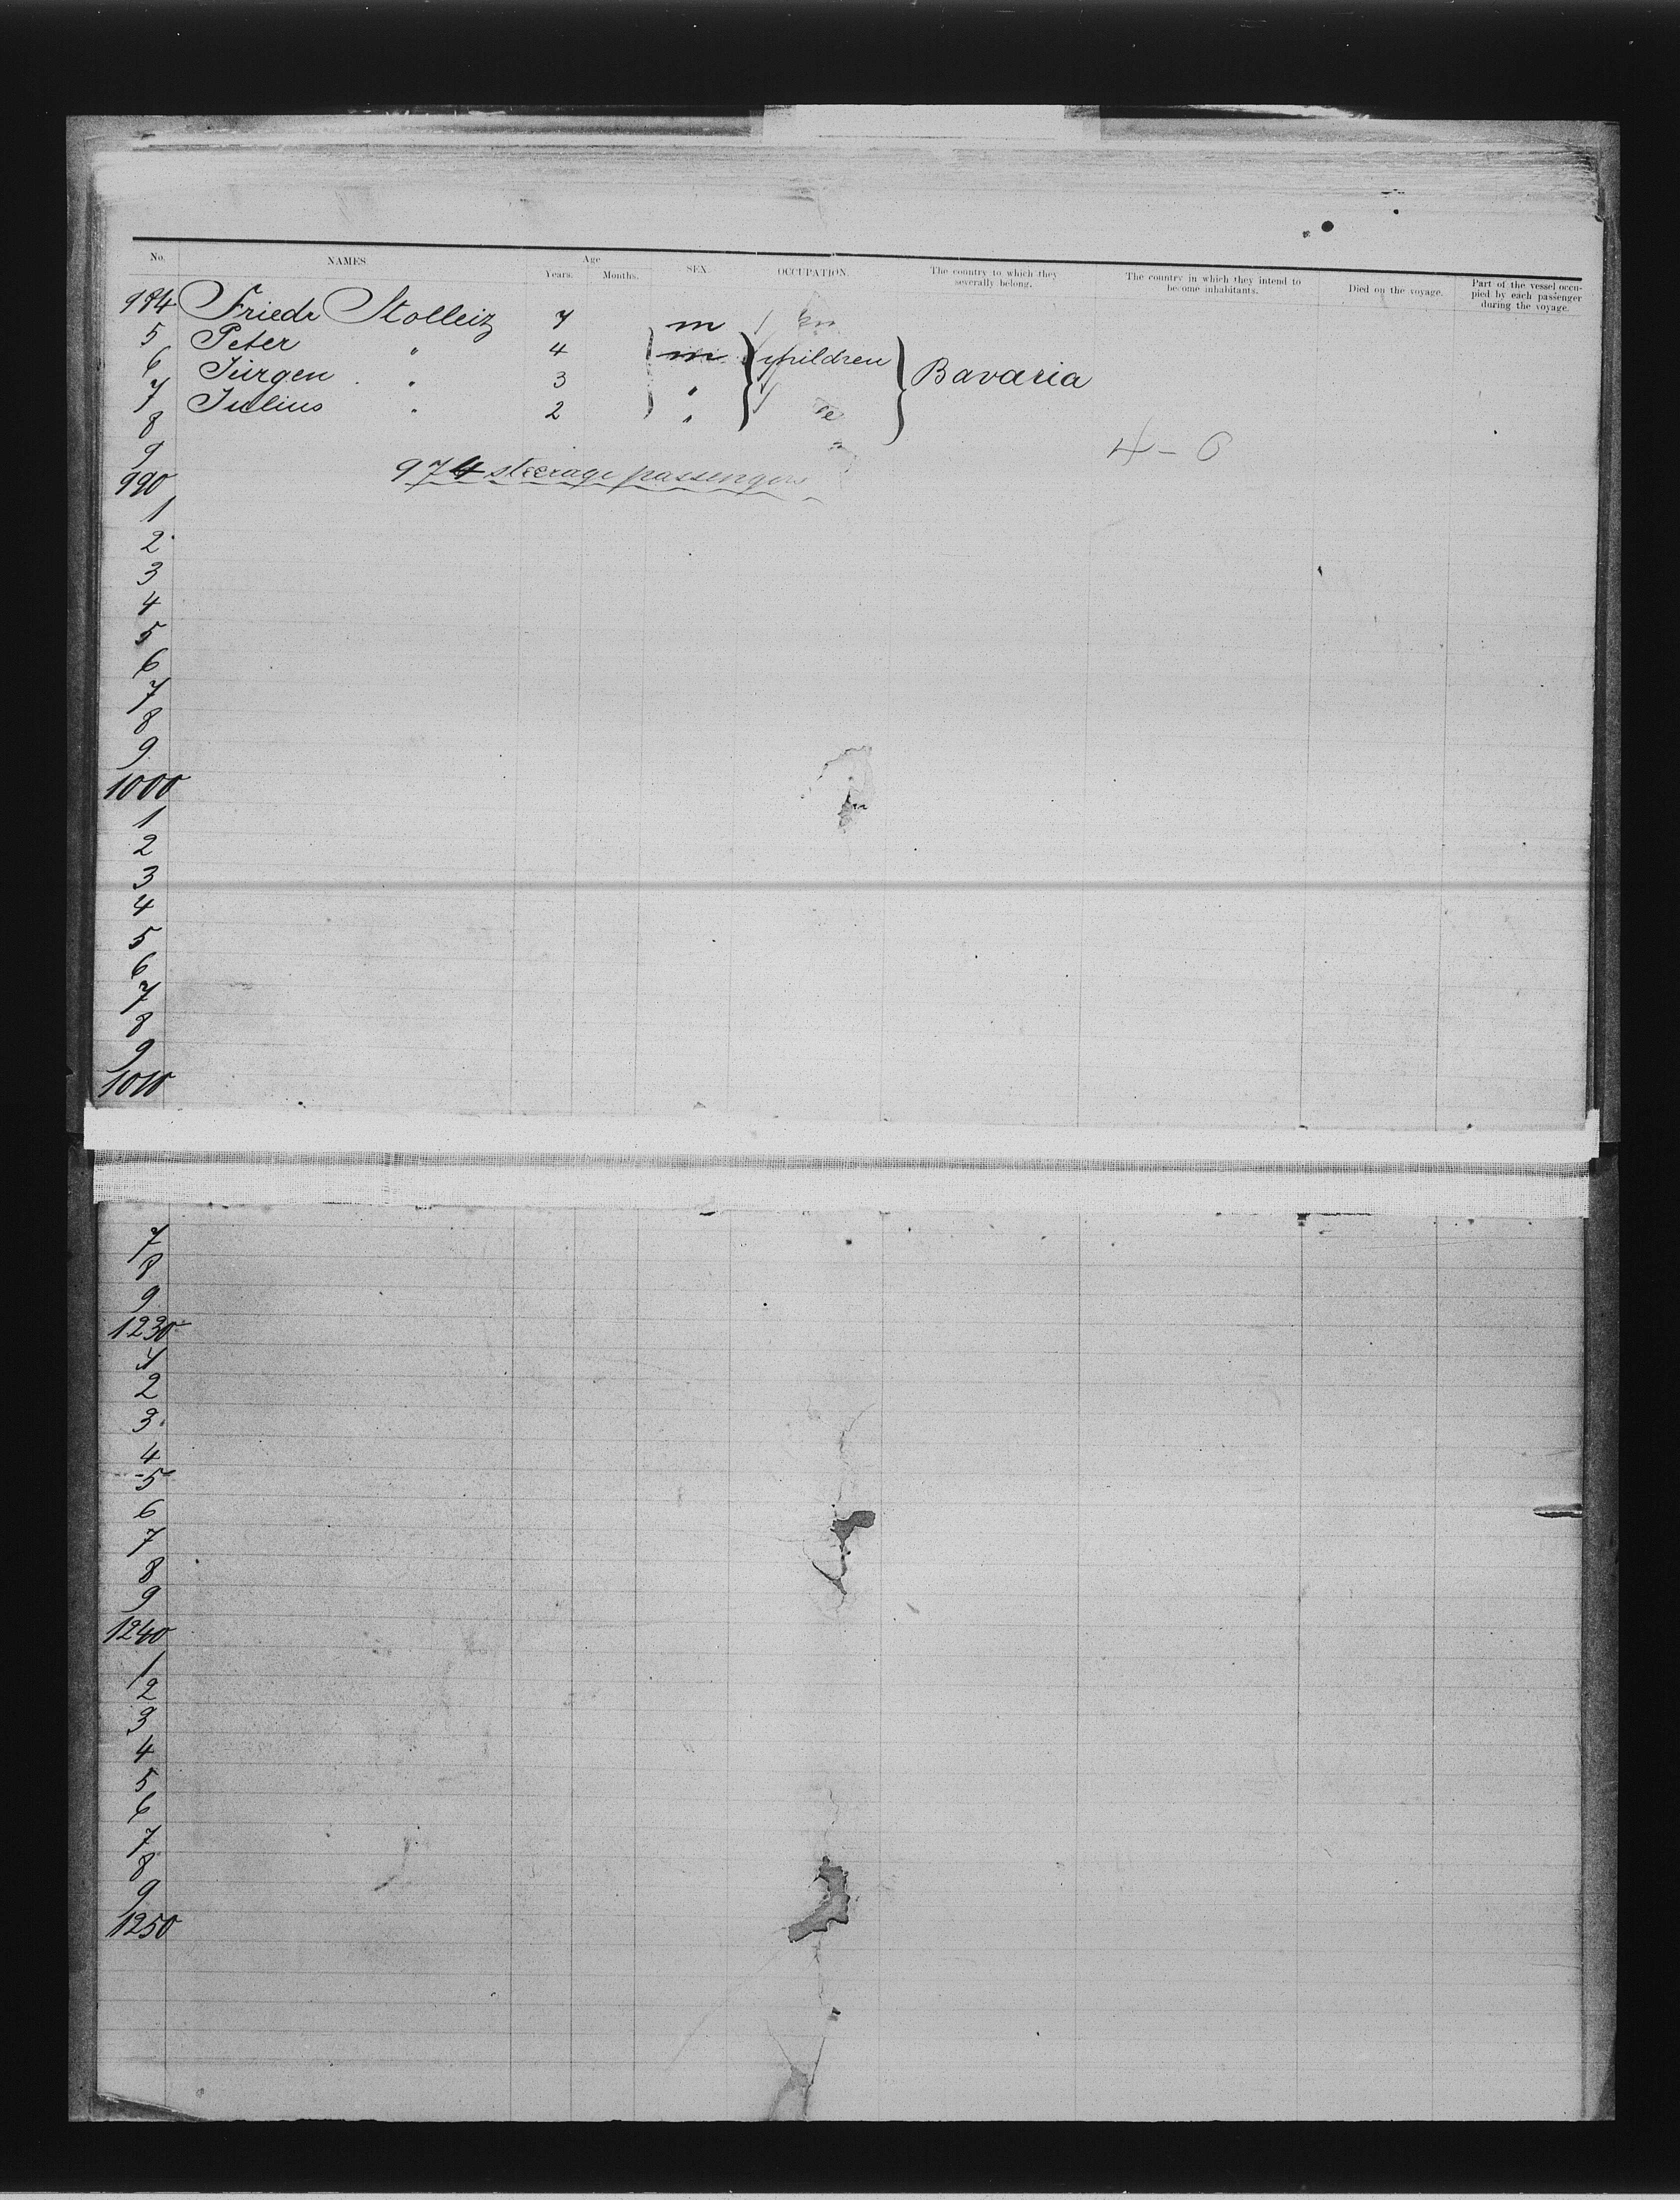 No. NAMES. Age Years. Months. SEX. OCCUPATION. The country to which they severally belong. The country in which they intend to become inhabitants. Died on the voyage. Part of the vessel occupied by each passenger during the voyage.
984 Friedr Stolleiz 7 m
5 Peter " 4 m children Bavaria
6 Jürgen " 3 "
7 Julius " 2 "
8
9 4-0
990 974 steerage passengers
1
2
3
4
5
6
7
8
9
1000
1
2
3
4
5
6
7
8
9
1010
7
8
9
1230
1
2
3
4
5
6
7
8
9
1240
1
2
3
4
5
6
7
8
9
1250